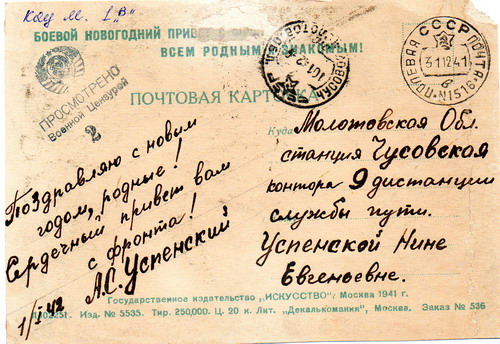 БОЕВОЙ НОВОГОДНИЙ
ВСЕМ РОДНЫМ
ПРОСМОТРЕНО
Военной Цензурой
2
СССР
ПОЛЕВАЯ ПОЧТА
31 12 41
ПОЧТОВАЯ КАРТОЧКА
Поздравляю с новым
годом, родные!
Сердечный привет вам
с фронта!
А.С. Успенский
1/I-42
Куда
Молотовская Обл.
станция Чусовская
контора 9 дистанции
службы пути.
Успенской Нине
Евгеньевне.
Государственное издательство „ИСКУССТВО“, Москва 1941 г.
Изд. № 5535. Тир. 250,000. Ц. 20 к. Лит. „Декалькомания“, Москва. Заказ № 536